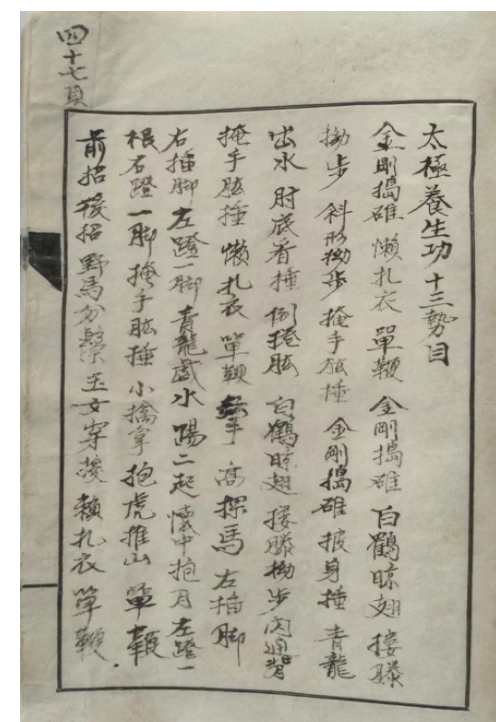 四十七頁
太極養生功十三勢目
金剛搗碓 懶扎衣 單鞭 金剛搗碓 白鶴晾翅 摟膝
拗步 斜形拗步 掩手肱捶 金剛搗碓 披身捶 青龍
出水 肘底看捶 倒捲肱 白鶴晾翅 摟膝拗步 閃通背
掩手肱捶 懶扎衣 單鞭 手 高探馬 左插脚
右插脚 左蹬一脚 青龍戲水 踢二起 懷中抱月 左蹬一
根 右蹬一脚 掩手肱捶 小擒拿 抱虎推山 單鞭
前招 後招 野馬分鬃 玉女穿梭 懶扎衣 單鞭